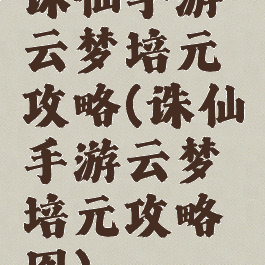 诛仙手游
云梦培元
攻略(诛仙
手游云梦
培元攻略
图)